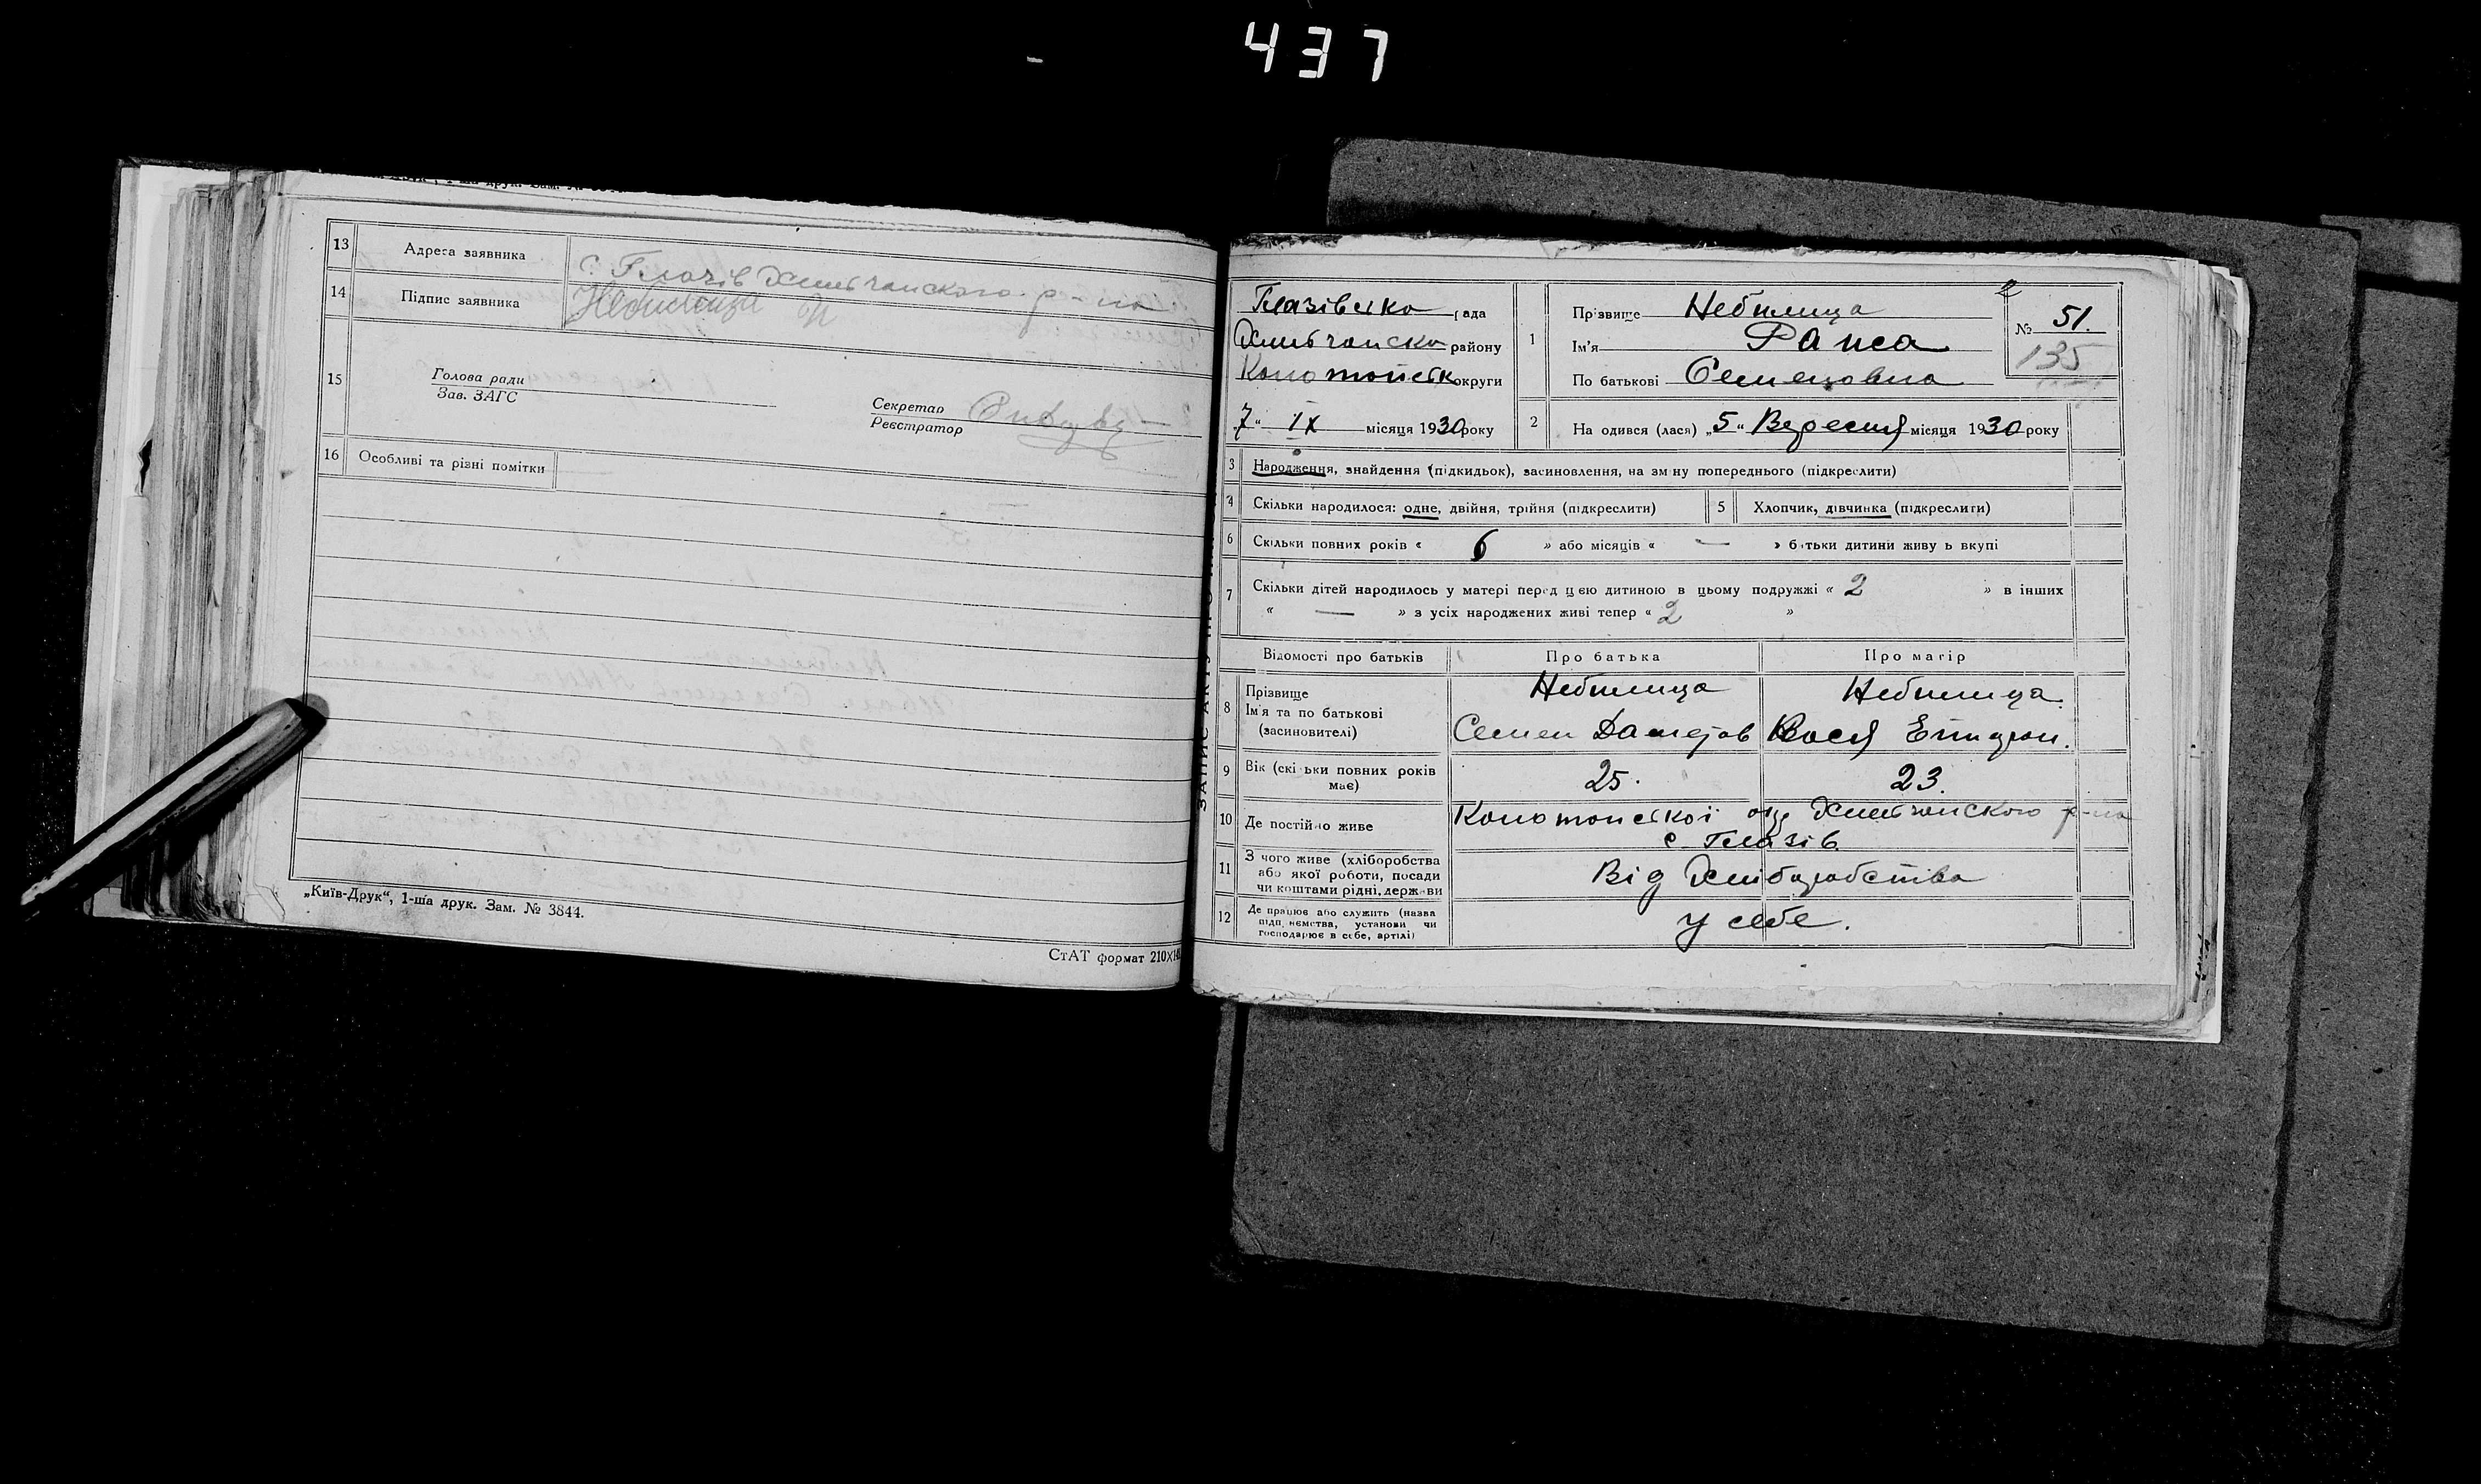 437
13 Адреса заявника с. Глазів Хильчанского р-на
14 Підпис заявника
15 Голова ради
Зав. ЗАГС
Секретар
Реєстратор
16 Особливі та різні помітки
„Київ-Друк“, 1-ша друк. Зам. № 3844.
СтАТ формат 210X
ЗАПИС АКТУ ПРО
Глазівська рада
Хильчанско району
Конотопськ округи
7 “ IX місяця 1930 року
1 Прізвище Небилица
Ім'я Раиса
По батькові Семеновна
№ 51.
135
2 На одився (лася) „5“ Вересня місяця 1930 року
3 Народження, знайдення (підкидьок), засиновлення, на зм ну попереднього (підкреслити)
4 Скільки народилося: одне, двійня, трійня (підкреслити)
5 Хлопчик, дівчинка (підкреслити)
6 Скільки повних років « 6 » або місяців « — » батьки дитини живу ь вкупі
7 Скільки дітей народилось у матері перед цією дитиною в цьому подружжі « 2 » в інших
« — » з усіх народжених живі тепер « 2 »
Відомості про батьків Про батька Про матір
8 Прізвище Небилица Небилица
Ім'я та по батькові
(засиновителі) Семен
9 Вік (скі ьки повних років має) 25. 23.
10 Де постійно живе Конотопської окр Хильчанского р-на
с. Глазів
11 З чого живе (хліборобства або якої роботи, посади чи коштами рідні, держ ви Від Хліборобства
12 Де працює або служить (назва підп ємства, установи чи господарює в себе, артілі) у себе.